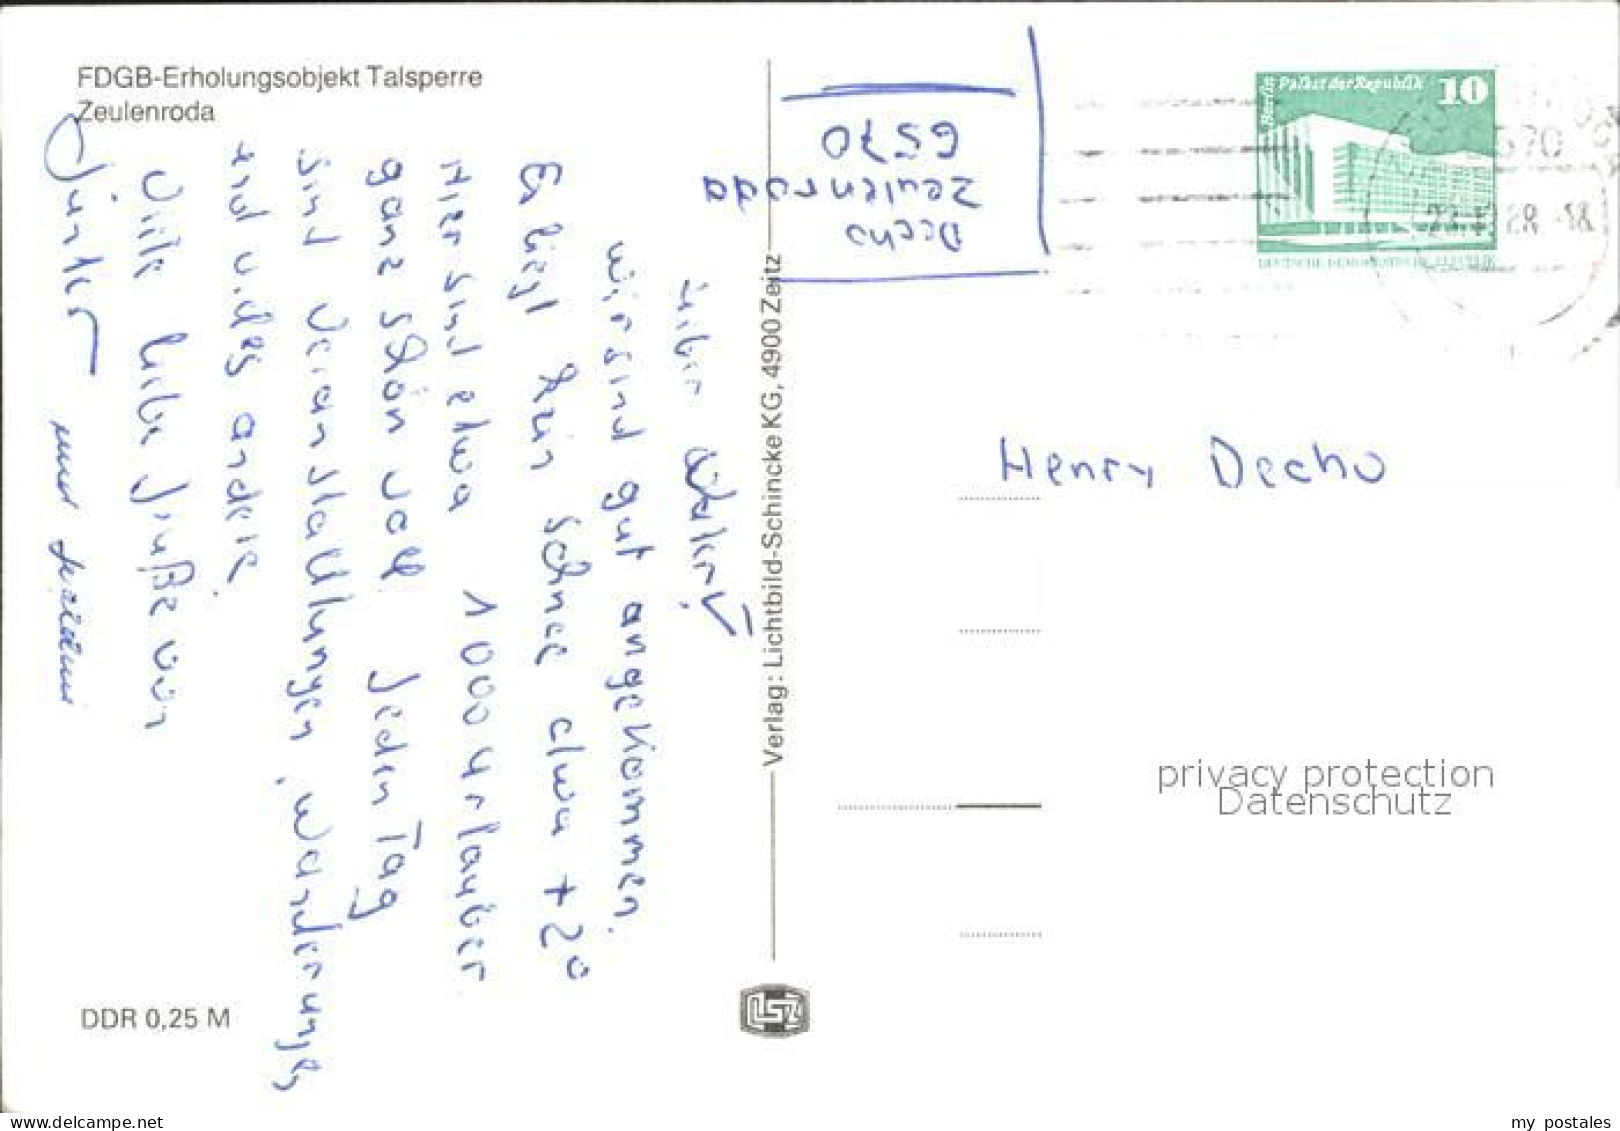 FDGB-Erholungsobjekt Talsperre
Zeulenroda
Decho
Zeulenroda
6570
Berlin Palast der Republik 10
DEUTSCHE DEMOKRATISCHE REPUBLIK
Lieber
wir sind gut angekommen.
Es liegt kein Schnee etwa + 20
Hier sind etwa 1000 Urlauber
ganz schön voll jeden Tag
sind Veranstaltungen, Wanderungen
und vieles andere.
Viele liebe Grüße von
Günter und
Henry Decho
Verlag: Lichtbild-Schincke KG, 4900 Zeitz
privacy protection
Datenschutz
DDR 0,25 M
LSZ
www.delcampe.net
my postales